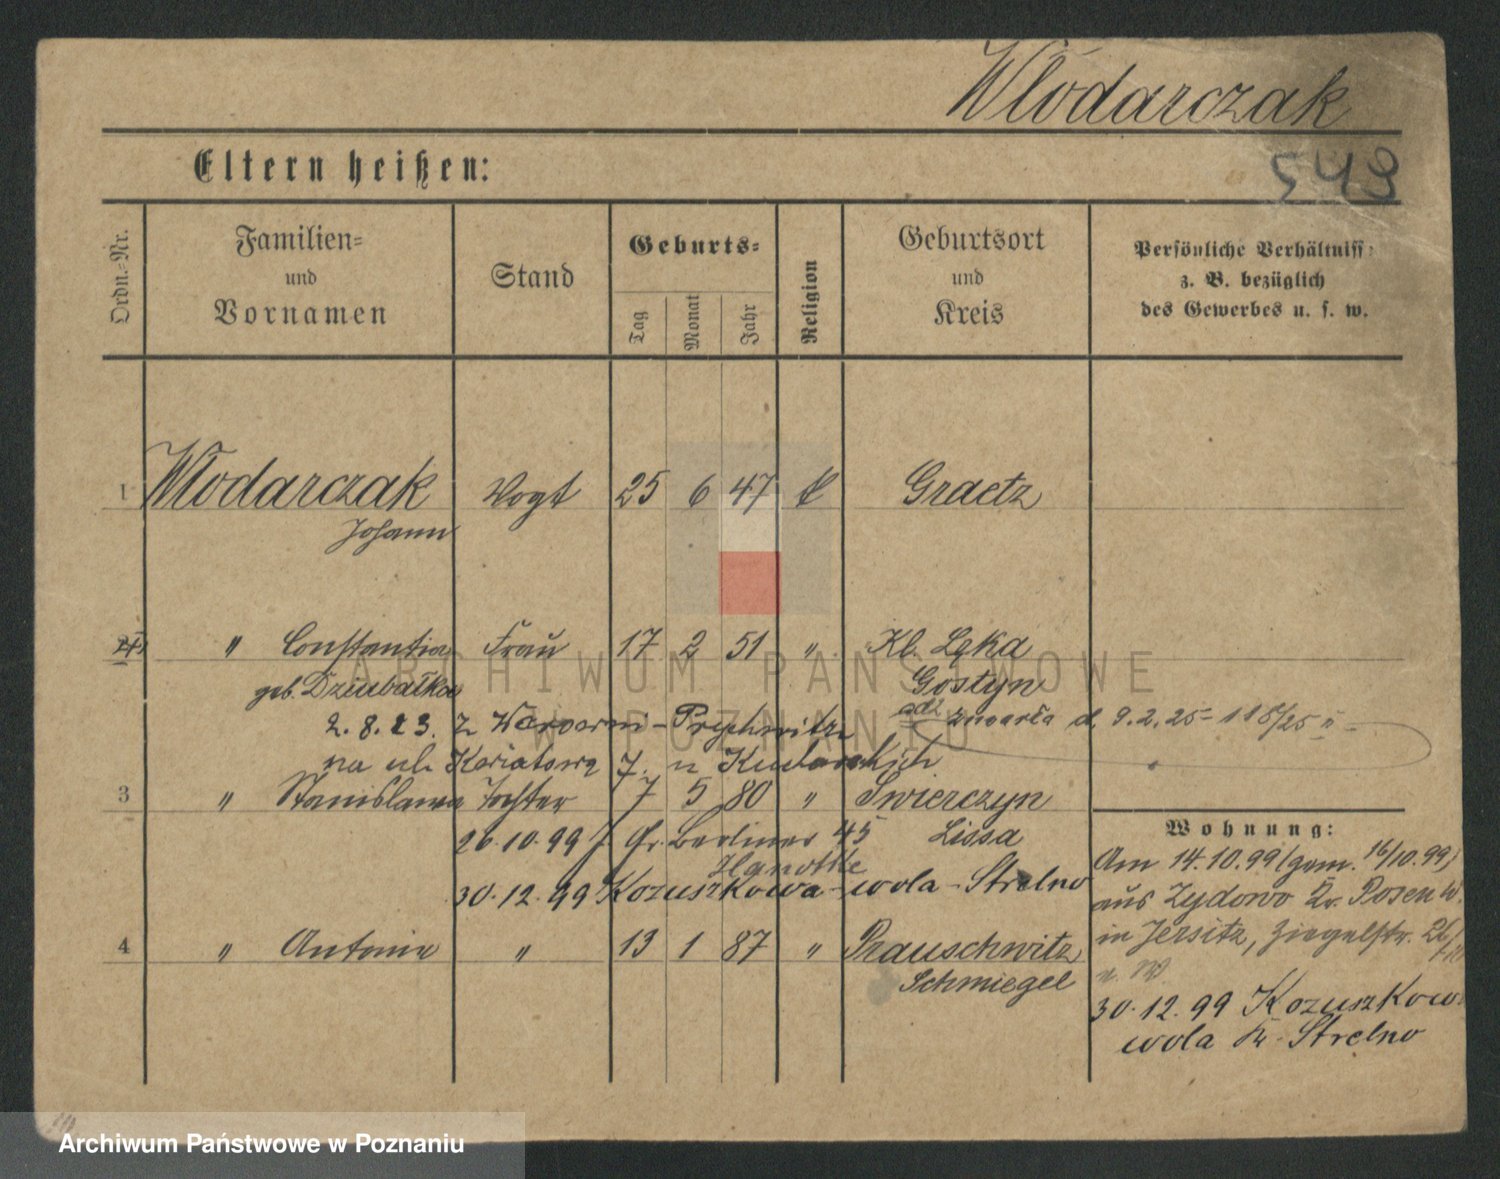 Włodarczak
Eltern heißen:
543
Ordn.=Nr.
Familien=
und
Vornamen
Stand
Geburts=
Tag
Monat
Jahr
Religion
Geburtsort
und
Kreis
Persönliche Verhältniss=
z. B. bezüglich
des Gewerbes u. s. w.
1 Włodarczak Vogt 25 6 47 k Graetz
Johann
" Constantia Frau 17 2 51 " Kl. Lęka
geb. Dziubałka Gostyn
2. 8. 23. z - Prychwitz zmarła d. 9.2.25 - 118/25 II
na ul. 7. u
3 " Stanislawa Tochter 7 5 80 " Swierczyn
26.10.99 Gr. Berliner 45 Lissa
30.12.99 Kozuszkowa-wola-Strelno
4 " Antonie " 13 1 87 " Prauschwitz
Schmiegel
Wohnung:
Am 14.10.99 (gem. 16/10.99)
aus Zydowo Kr. Posen W.
in Jersitz, Ziegelstr. 26/
u. W.
30.12.99 Kozuszkow
wola Kr. Strelno
ARCHIWUM PAŃSTWOWE
W POZNANIU
Archiwum Państwowe w Poznaniu